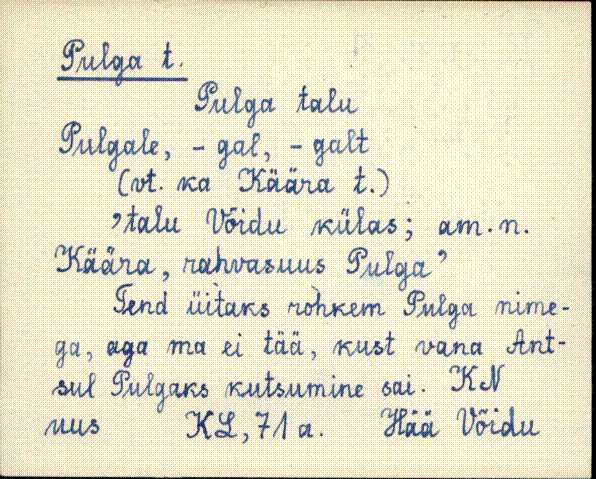 Pulga t.
Pulga talu
Pulgale, -gal, -galt
(vt. ka Käära t.)
'talu Võidu külas; am. n.
Käära, rahvasuus Pulga'
Tend üitaks rohkem Pulga nime-
ga, aga ma ei tää, kust vana Ant-
sul Pulgaks kutsumine sai. KN
uus KL, 71 a. Hää Võidu